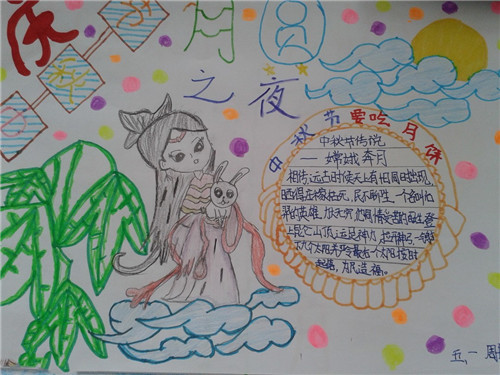 庆
秋
月圆
之夜
中秋节要吃月饼
中秋节传说
——嫦娥奔月
相传远古时候天上有十日同时出现,
晒得庄稼枯死,民不聊生,一个名叫后
羿的英雄,力大无穷,他同情受苦的百姓,登
上昆仑山顶,运足神力,拉开神弓,一气射
下九个太阳,并严令最后一个太阳按时
起落,为民造福。
五,一 周